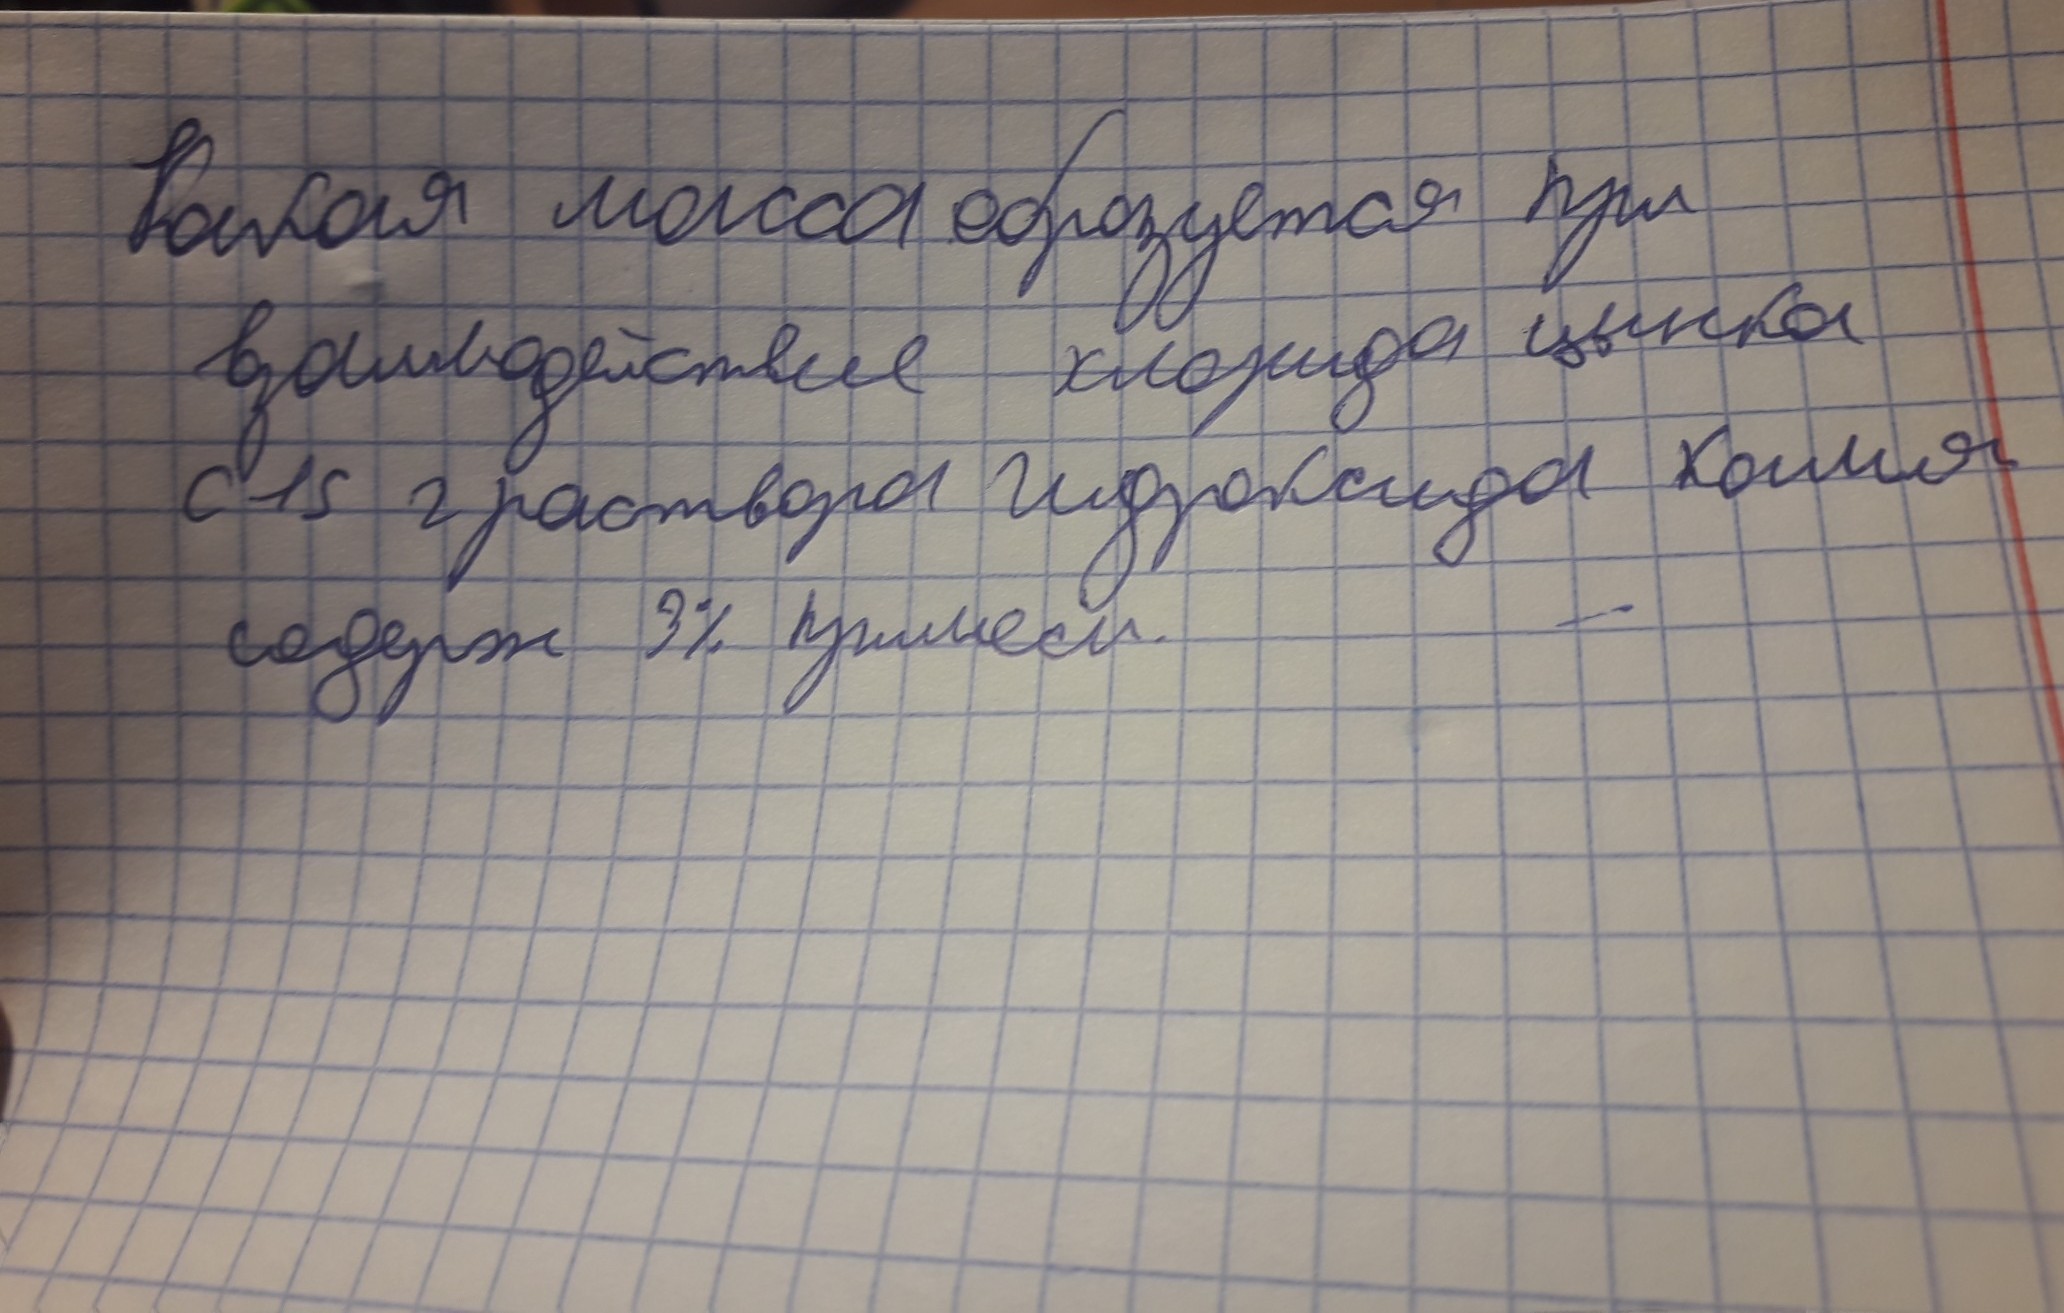 Какая масса образуется при
взаимодействие хлорида цынка
с 15 г раствора гидроксида калия
содерж 3% примеси.